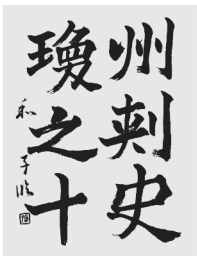 州刺史
瓊之十
和子